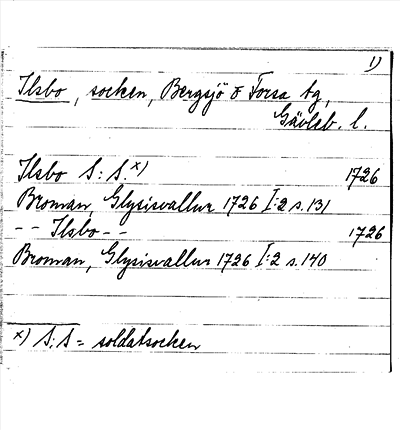 1)
Ilsbo, socken, Bergsjö o Forsa tg,
Gävleb. l.
Ilsbo S: S. x) 1726
Broman, Glysisvallur 1726 I:2 s. 131
-- Ilsbo -- 1726
Broman, Glysisvallur 1726 I:2 s. 140
x) S; S = soldatsocken